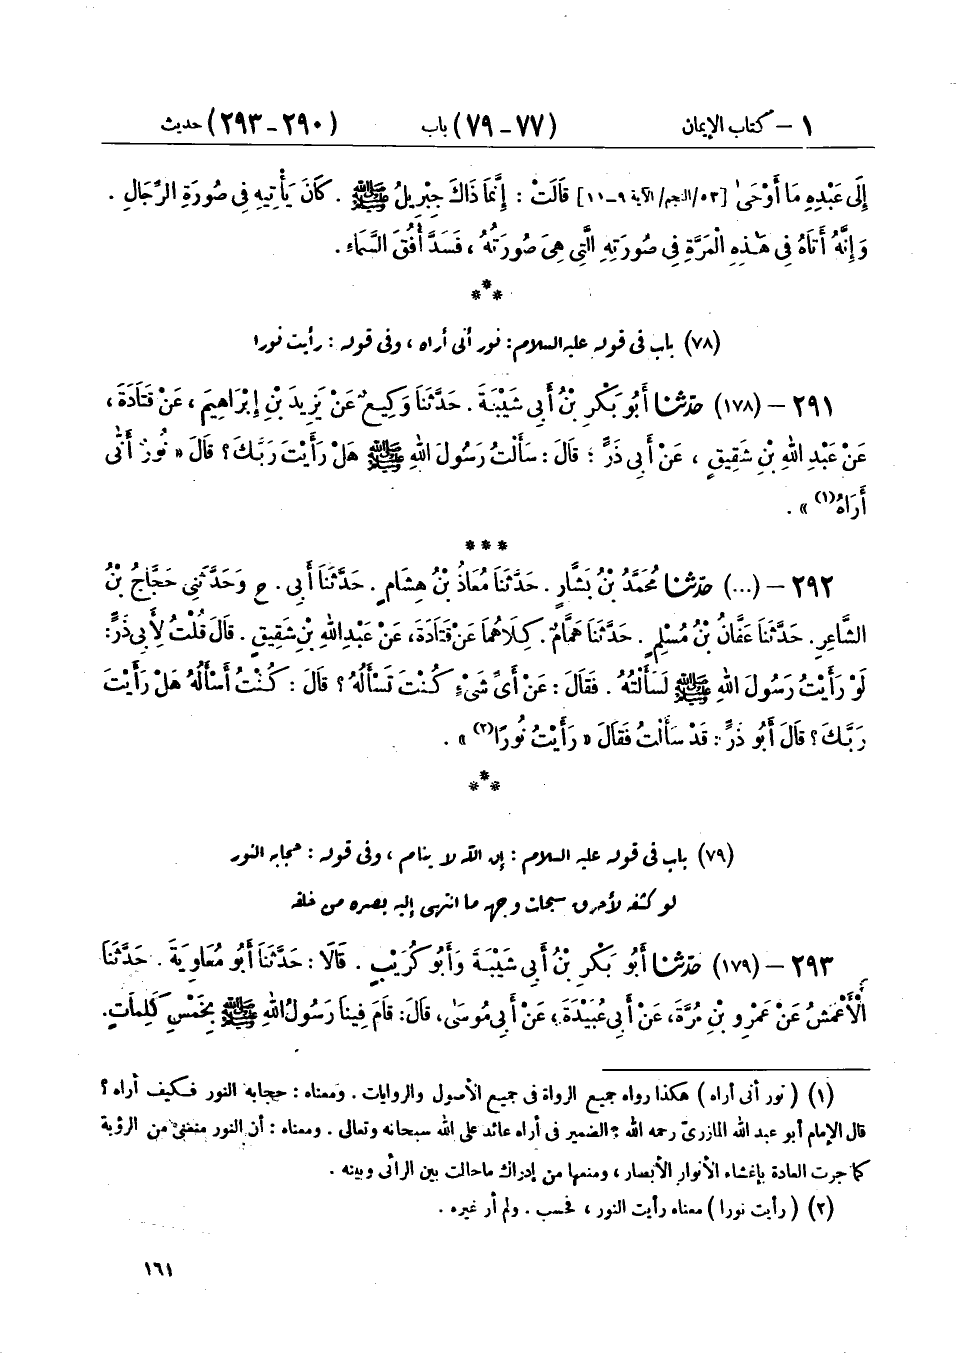 ١ – كتاب الإيمان (٧٧ – ٧٩) باب (٢٩٠ – ٢٩٣) حديث
إِلَى عَبْدِهِ مَا أَوْحَىٰ [٥٣/النجم/الآية ٩-١١] قَالَتْ : إِنَّمَا ذَاكَ جِبْرِيلُ ﷺ . كَانَ يَأْتِيهِ فِي صُورَةِ الرِّجَالِ .
وَإِنَّهُ أَتَاهُ فِي هَٰذِهِ الْمَرَّةِ فِي صُورَتِهِ الَّتِي هِيَ صُورَتُهُ ، فَسَدَّ أُفُقَ السَّمَاءِ .
***
(٧٨) باب في قوله عليه السلام : نور أنى أراه ، وفي قوله : رأيت نورا
٢٩١ – (١٧٨) حدّثنا أَبُو بَكْرِ بْنُ أَبِي شَيْبَةَ . حَدَّثَنَا وَكِيعٌ عَنْ يَزِيدَ بْنِ إِبْرَاهِيمَ ، عَنْ قَتَادَةَ ،
عَنْ عَبْدِ اللهِ بْنِ شَقِيقٍ ، عَنْ أَبِي ذَرٍّ ؛ قَالَ : سَأَلْتُ رَسُولَ اللهِ ﷺ هَلْ رَأَيْتَ رَبَّكَ ؟ قَالَ « نُورٌ أَنَّى
أَرَاهُ(١) » .
***
٢٩٢ – (...) حدّثنا مُحَمَّدُ بْنُ بَشَّارٍ . حَدَّثَنَا مُعَاذُ بْنُ هِشَامٍ . حَدَّثَنَا أَبِي . ح وَحَدَّثَنِي حَجَّاجُ بْنُ
الشَّاعِرِ . حَدَّثَنَا عَفَّانُ بْنُ مُسْلِمٍ . حَدَّثَنَا هَمَّامٌ . كِلَاهُمَا عَنْ قَتَادَةَ ، عَنْ عَبْدِ اللهِ بْنِ شَقِيقٍ . قَالَ قُلْتُ لِأَبِي ذَرٍّ :
لَوْ رَأَيْتُ رَسُولَ اللهِ ﷺ لَسَأَلْتُهُ . فَقَالَ : عَنْ أَيِّ شَيْءٍ كُنْتَ تَسْأَلُهُ ؟ قَالَ : كُنْتُ أَسْأَلُهُ هَلْ رَأَيْتَ
رَبَّكَ ؟ قَالَ أَبُو ذَرٍّ : قَدْ سَأَلْتُ فَقَالَ « رَأَيْتُ نُورًا(٢) » .
***
(٧٩) باب في قوله عليه السلام : إن الله لا ينام ، وفي قوله : حجابه النور
لو كشفه لأحرق سبحات وجهه ما انتهى إليه بصره من خلقه
٢٩٣ – (١٧٩) حدّثنا أَبُو بَكْرِ بْنُ أَبِي شَيْبَةَ وَأَبُو كُرَيْبٍ . قَالَا : حَدَّثَنَا أَبُو مُعَاوِيَةَ . حَدَّثَنَا
الْأَعْمَشُ عَنْ عَمْرِو بْنِ مُرَّةَ ، عَنْ أَبِي عُبَيْدَةَ ، عَنْ أَبِي مُوسَىٰ ، قَالَ : قَامَ فِينَا رَسُولُ اللهِ ﷺ بِخَمْسِ كَلِمَاتٍ .
(١) ( نور أنى أراه ) هكذا رواه جميع الرواة في جميع الأصول والروايات . ومعناه : حجابه النور فكيف أراه ؟
قال الإمام أبو عبد الله المازريّ رحمه الله : الضمير في أراه عائد على الله سبحانه وتعالى . ومعناه : أن النور منعني من الرؤية
كما جرت العادة بإغشاء الأنوار الأبصار ، ومنعها من إدراك ما حالت بين الرائى وبينه .
(٢) ( رأيت نورا ) معناه رأيت النور ، فحسب . ولم أر غيره .
١٦١